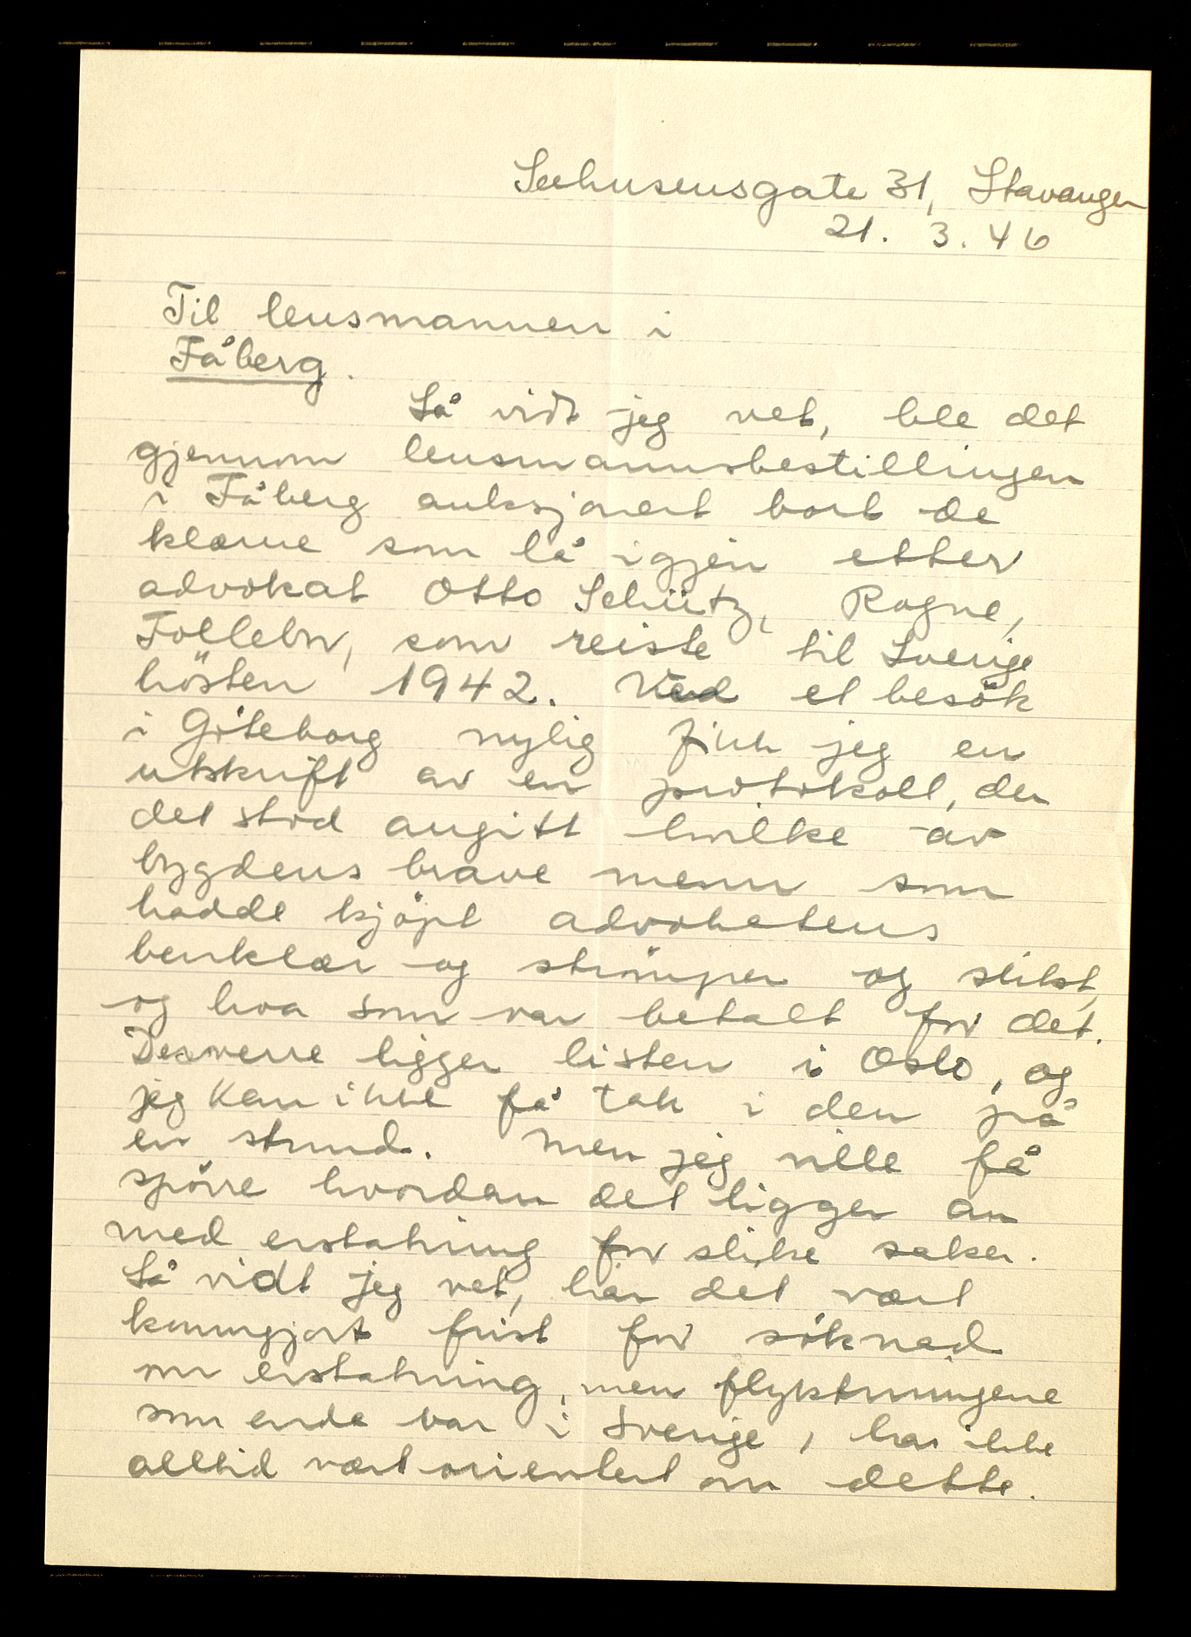 Seehusensgate 31, Stavanger
21. 3. 46
Til lensmannen i
Fåberg.
Så vidt jeg vet, ble det
gjennom lensmannsbestillingen
i Fåberg auksjonert bort de
klærne som lå igjen etter
advokat Otto Schütz, Rogne,
Follebu, som reiste til Sverige
hösten 1942. Ved et besök
i Göteborg nylig fikk jeg en
utskrift av en protokoll, der
det stod angitt hvilke av
bygdens brave menn som
hadde kjöpt advokatens
benklær og strömper og slikt,
og hva som var betalt for det.
Desverre ligger listen i Oslo, og
jeg kan ikke få tak i den på
en stund. Men jeg ville få
spörre hvordan det ligger an
med erstatning for slike saker.
Så vidt jeg vet, har det vært
kunngjort frist for söknad
om erstatning, men flyktningene
som enda var i Sverige, har ikke
alltid vært orientert om dette.